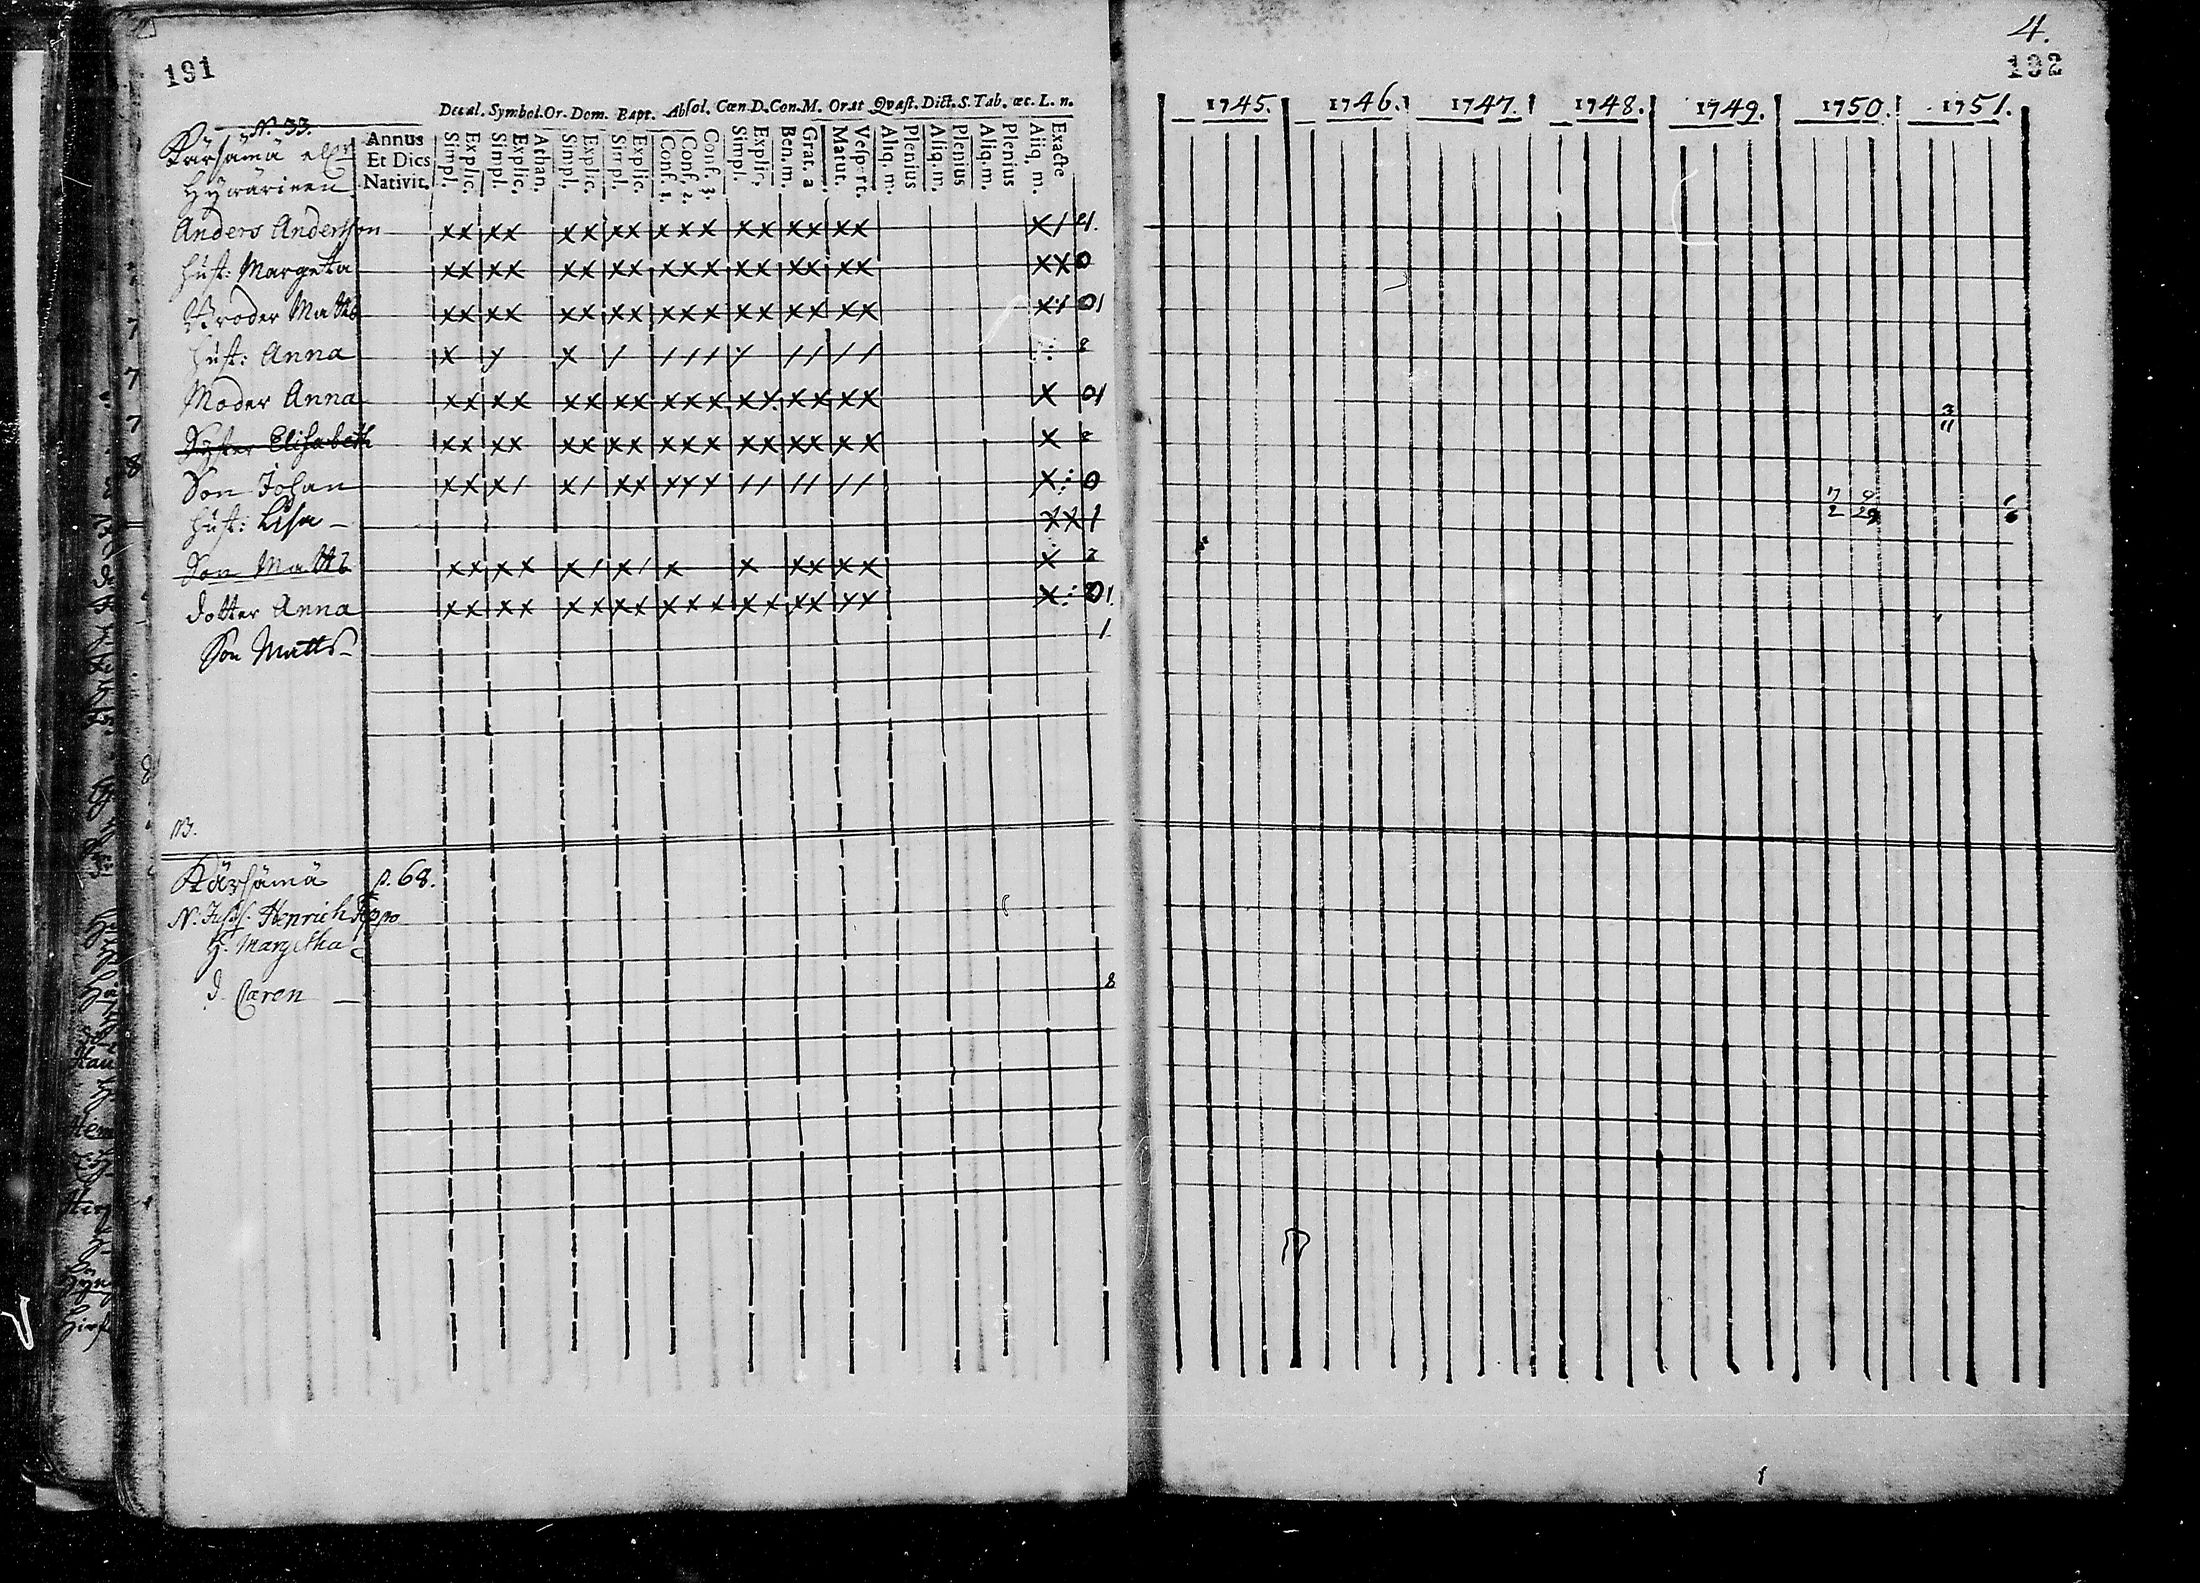 191
Decal. Symbol. Or. Dom. Bapt. Absol. Cœn. D. Con. M. Orat Qvæst. Dict. S. Tab. œc. L. n.
N. 33.
Kärsämä eller
Hywärinen
Annus
Et Dies
Nativit.
Simpl. Explic. Simpl. Explic. Athan. Simpl. Explic. Simpl. Explic. Conf. 1. Conf. 2. Conf. 3. Simpl. Explic. Ben. m. Grat. a Matut. Vespert. Aliq. m. Plenius Aliq. m. Plenius Aliq. m. Plenius Aliq. m. Exacte
Anders Andersson x x x x x x x x x x x x x x x x x x / 4.
hust: Margeta x x x x x x x x x x x x x x x x x x x 0
Broder Matts x x x x x x x x x x x x x x x x x x / 01
hust: Anna x x / / / / / / / / / 8
Moder Anna x x x x x x x x x x x x x x x x x x 01
Syster Elisabeth x x x x x x x x x x x x x x x x x x 8
Son Johan x x x / x / x x x x x / / / / / / x : 0
hust: Lisa x x 1
Son Matts x x x x x / x / x x x x x x x 2
dotter Anna x x x x x x x x x x x x x x x x x x : 01.
Son Matts 1
Kärsämä p. 68.
Henrich Seppo
H. Margetha
d. Caren 8
4.
192
1745. 1746. 1747. 1748. 1749. 1750. 1751.
3
11
7 9
2 29
6